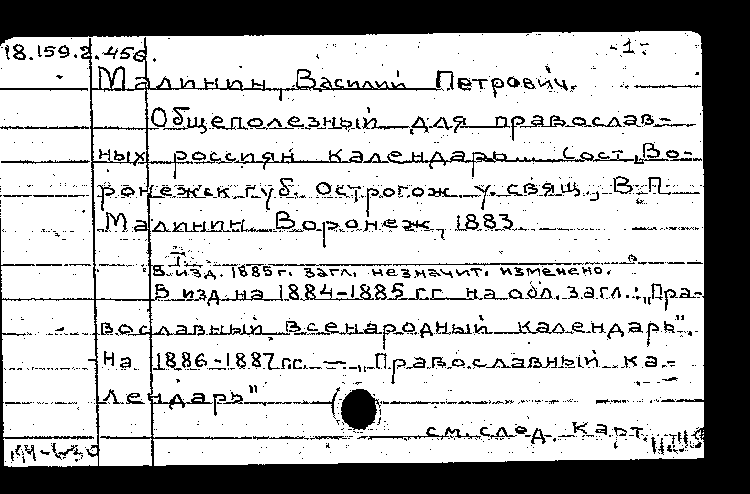 18.159.2.456.
-1-
Малинин, Василий Петрович.
Общеполезный для православ-
ных россиян календарь... Сост. Во-
ронежск. губ. Острогож. у. свящ., В.П.
Малинин. Воронеж, 1883.
В изд. 1885 г. загл. незначит. изменено.
В изд. на 1884-1885 г.г. на обл. загл.: "Пра-
вославный всенародный календарь".
На 1886-1887 гг. — "Православный ка-
лендарь"
см. след. карт.